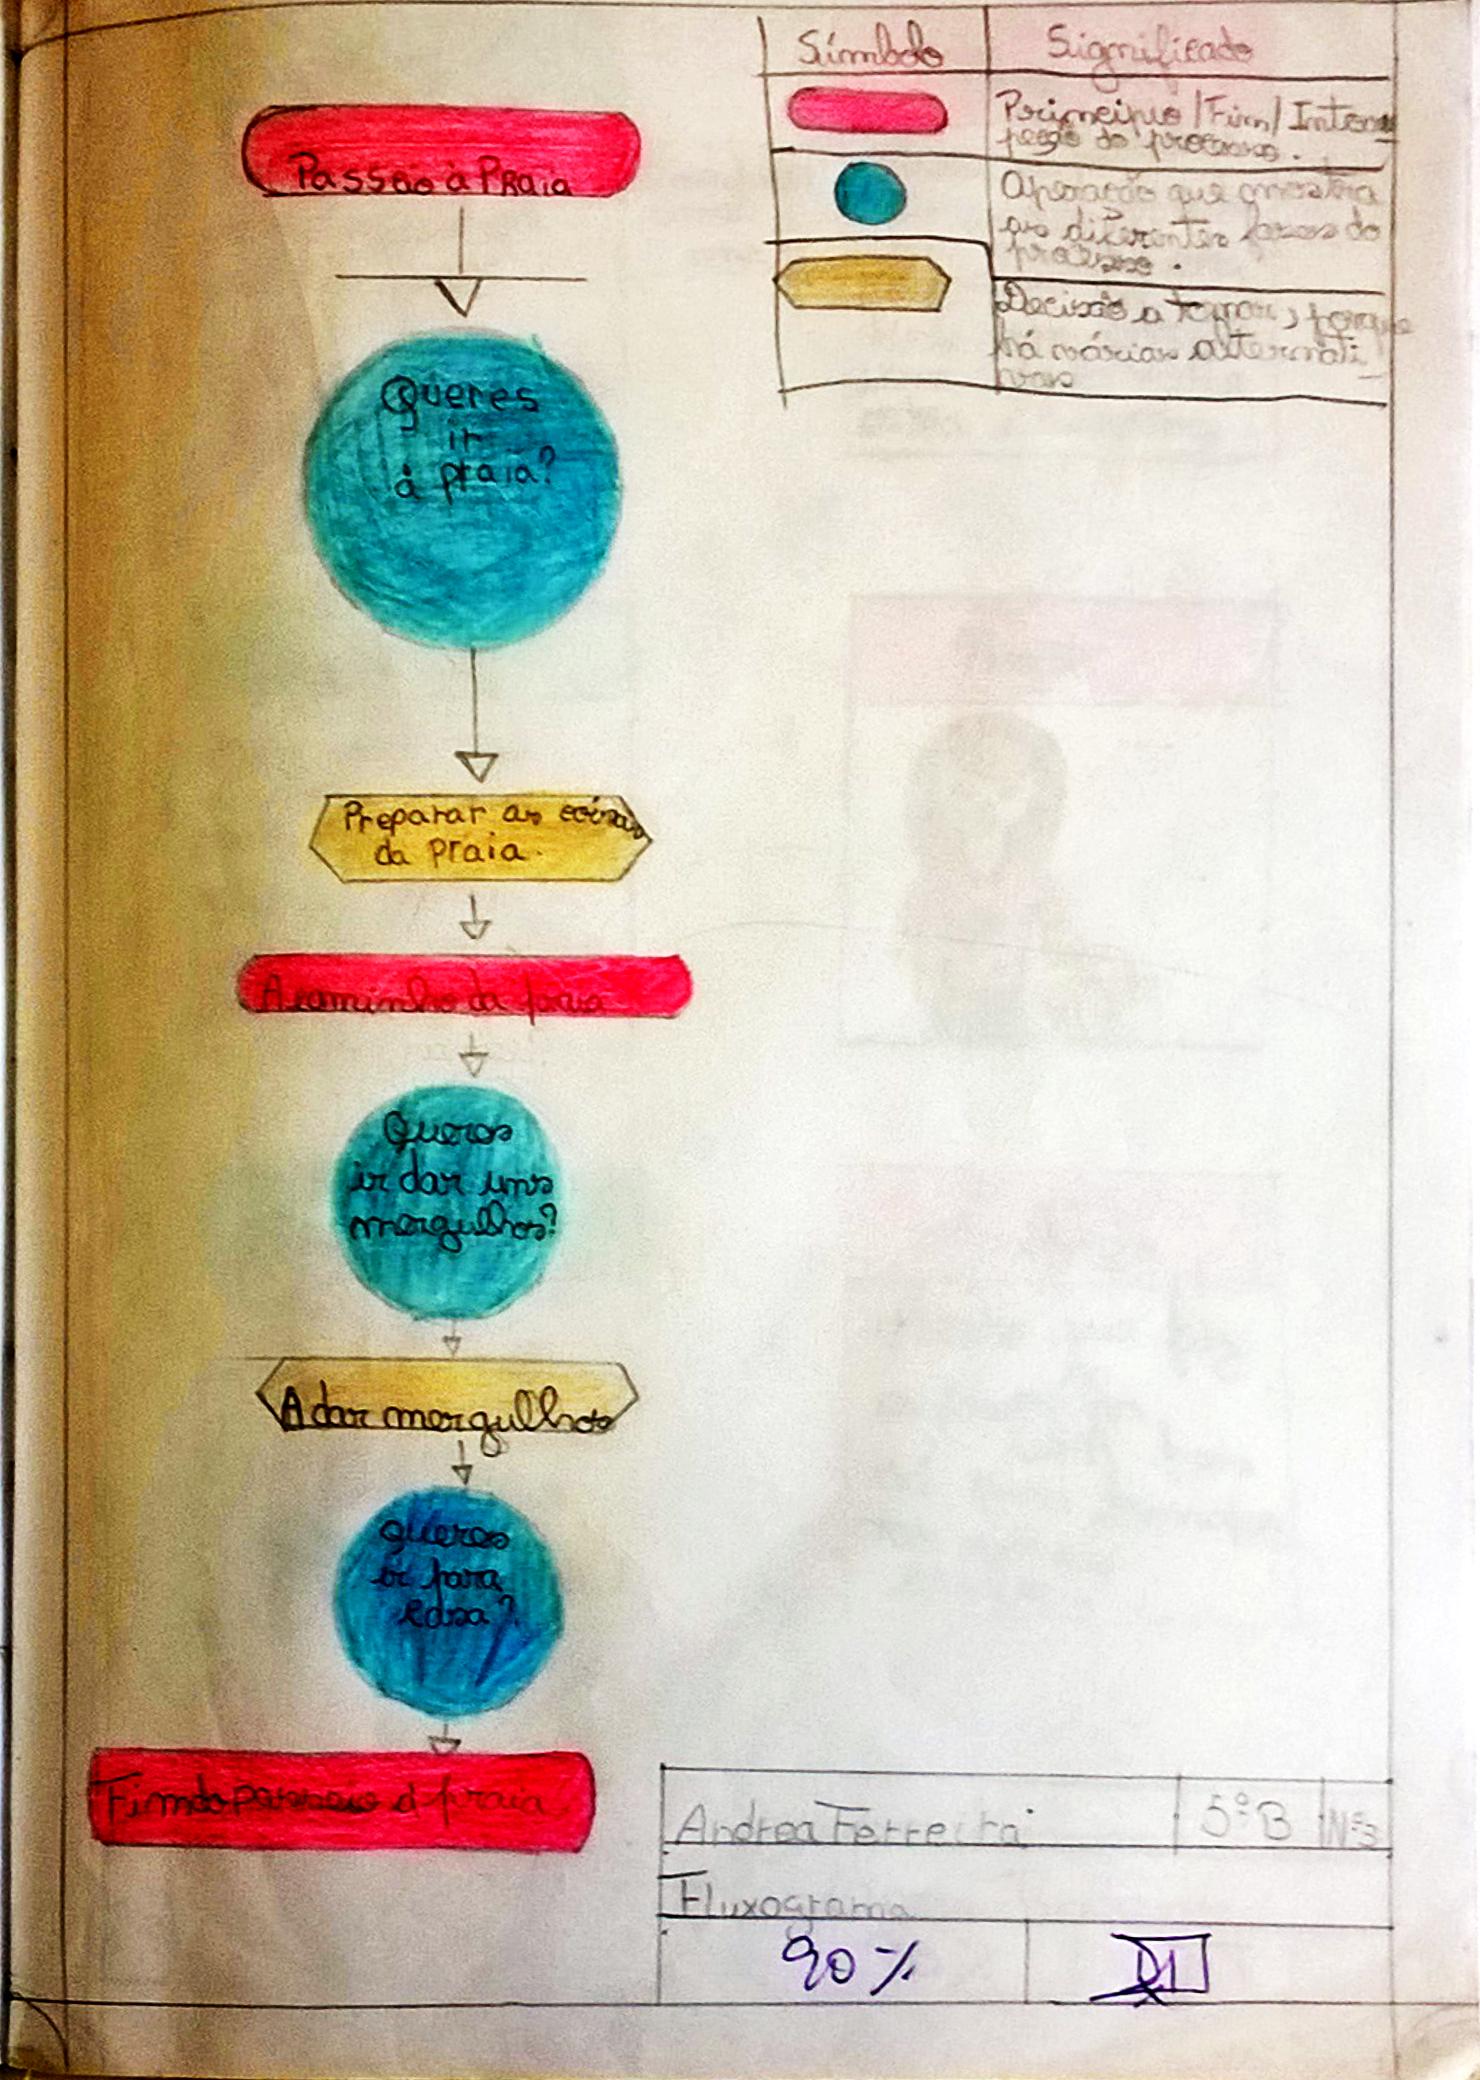 Passão à Praia
Queres
ir
à praia?
Preparar as coisas
da praia.
A caminho da praia
Queres
ir dar uns
mergulhos?
A dar mergulhos
queres
ir para
casa?
Fim do passeio à praia.
Símbolo
Significado
Principio / Fim / Interru
peção do processo.
Operação que mostra
as diferentes fases do
processo.
Decisão a tomar, porque
há várias alternati-
vas
Andrea Ferreira
5º B
Nº3
Fluxograma
90 %